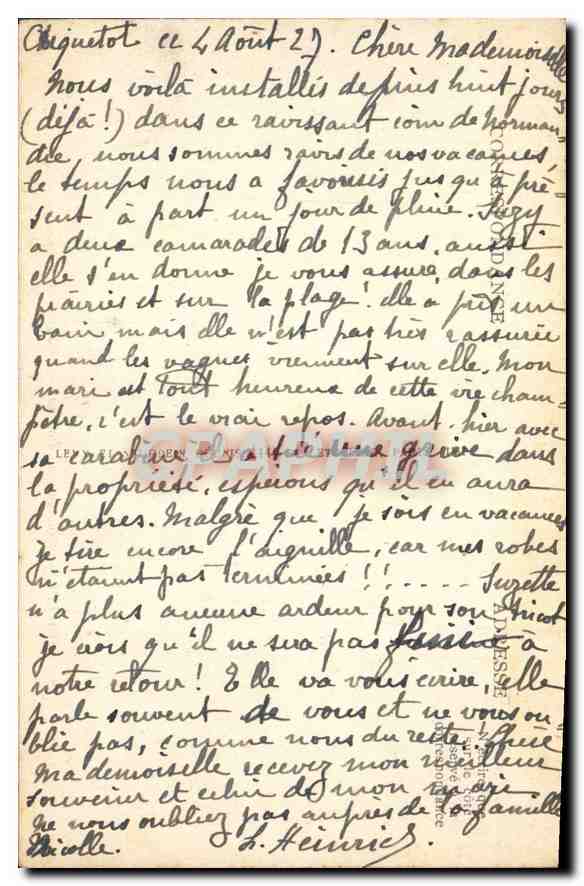 Criquetot ce 4 Août 27. Chère Mademoiselle
Nous voilà installés depuis huit jours
(déjà!) dans ce ravissant coin de Norman-
die, nous sommes ravis de nos vacances,
le temps nous a favorisés jusqu'à pré-
sent à part un jour de pluie. Suzy
a deux camarades de 13 ans, aussi
elle s'en donne je vous assure, dans les
prairies et sur la plage! elle a pris un
bain mais elle n'est pas très rassurée
quand les vagues viennent sur elle. Mon
mari est tout heureux de cette vie cham-
pêtre, c'est le vrai repos. Avant-hier avec
sa carabine il a tué une grive dans
la propriété, espérons qu'il en aura
d'autres. Malgré que je sois en vacances
je tire encore l'aiguille, car mes robes
n'étaient pas terminées!!..... Suzette
n'a plus aucune ardeur pour son tricot
je crois qu'il ne sera pas fini à
notre retour! Elle va vous écrire, elle
parle souvent de vous et ne vous ou-
blie pas, comme nous du reste. Chère
Mademoiselle recevez mon meilleur
souvenir et celui de mon mari
ne nous oubliez pas auprès de la famille
Nicolle. L. Heinrich.
CORRESPONDANCE
ADRESSE
CPARTAPHIL